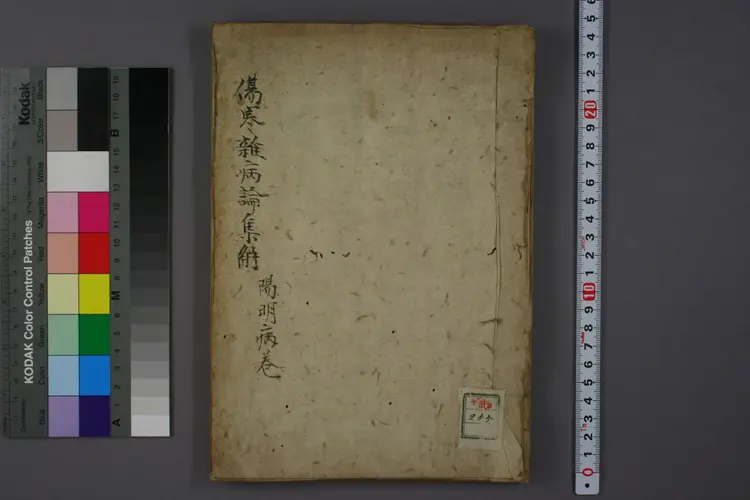 傷寒雜病論集解
陽明病卷
Kodak
KODAK Color Control Patches
Blue
Cyan
Green
Yellow
Red
Magenta
White
3/Color
Black
A
M
B
1
2
3
4
5
6
7
8
9
10
11
12
13
14
15
16
17
18
19
0
1
2
3
4
5
6
7
8
9
10
1
2
3
4
5
6
7
8
9
20
1
2
3
4
5